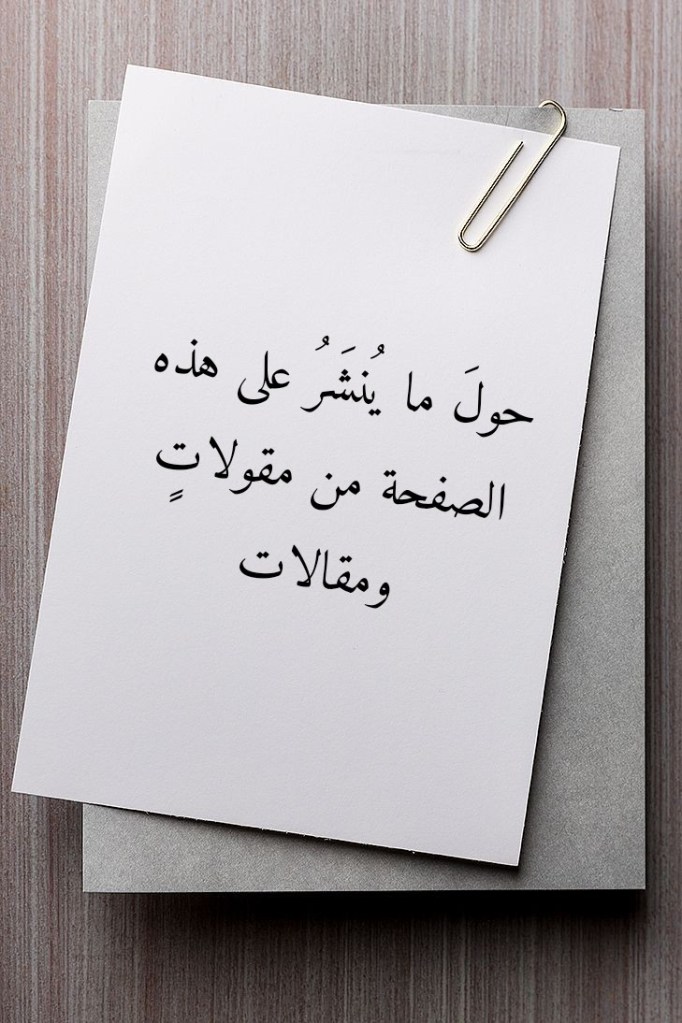 حولَ ما يُنشَرُ على هذه
الصفحة من مقولاتٍ
ومقالات